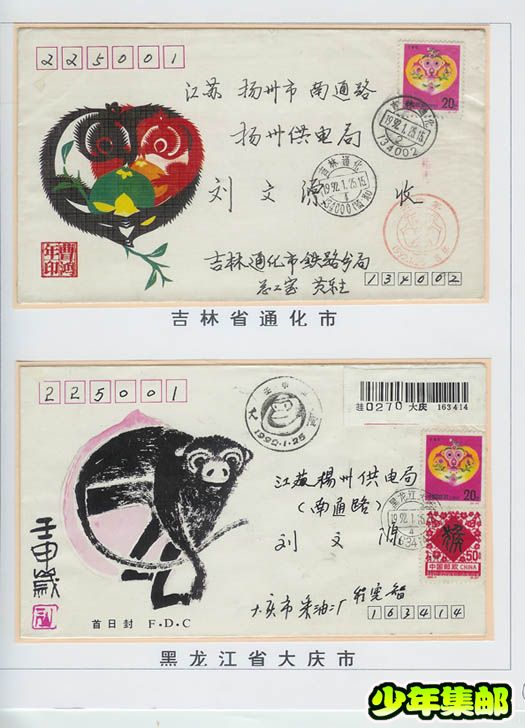 225001
江苏 扬州市 南通路
扬州供电局
刘文源 收
20分
吉林通化
1992.1.25.15
2
134002
吉林通化
1992.1.25.15
吉林通化市铁路分局
134002
吉林省通化市
225001
壬申
1992.1.25
挂0270 大庆 163414
江苏扬州供电局
(南通路)
刘文源
20分
50分
猴
中国邮政 CHINA
黑龙江大庆
1992.1.25
壬申岁
大庆市采油二厂
163414
首日封 F·D·C
黑龙江省大庆市
少年集邮